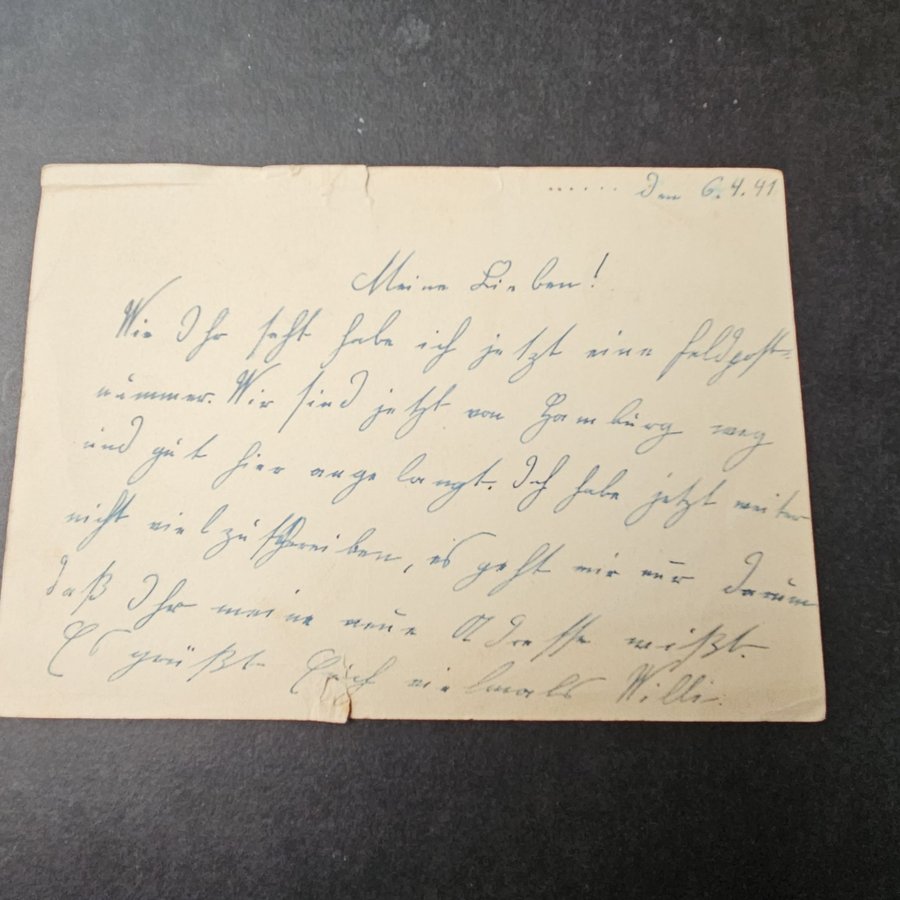 ...... Den 6.4.41
Meine Lieben!
Wie Ihr seht habe ich jetzt eine Feldpost-
nummer. Wir sind jetzt von Hamburg weg
und gut hier angelangt. Ich habe jetzt weiter
nicht viel zu schreiben, es geht mir nur darum
daß Ihr meine neue Adresse wißt.
Es grüßt Euch vielmals Willi.